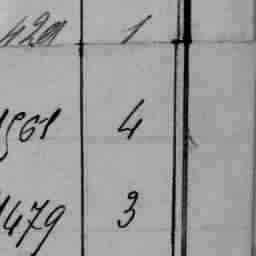 420 1
1561 4
1479 3